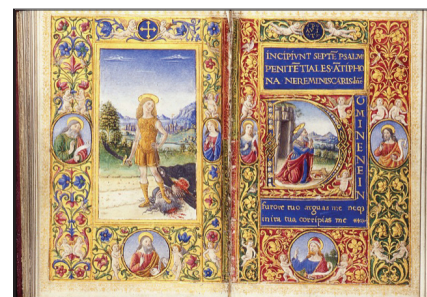 INCIPIVNT SEPTĒ PSALM
PENITĒTIALES· ĀTIPHO
NA NEREMINISCARIS
D
OMINENEIN
furore tuo arguas me neq
in ira tua corripias me